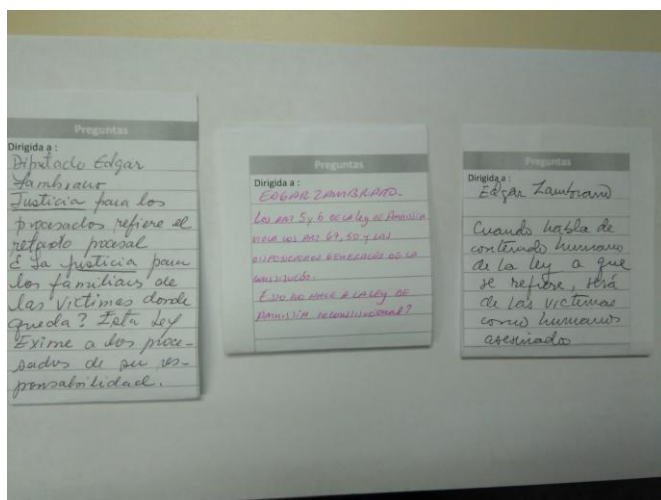 Preguntas
Dirigida a :
Diputado Edgar
Zambrano
Justicia para los
procesados refiere el
retardo procesal
É la justicia para
los familiares de
las victimas donde
queda? Esta Ley
Exime a los proce-
sados de su res-
ponsabilidad.
Preguntas
Dirigida a :
EDGAR ZAMBRANO.
LOS ART 5 y 6 DE LA LEY DE AMNISTIA
VIOLA LOS ART 67, 50 y LAS
DISPOSICIONES GENERALES DE LA
CONSTITUCIÓN.
ESTO NO HACE A LA LEY DE
AMNISTIA INCONSTITUCIONAL?
Preguntas
Dirigida a :
Edgar Zambrano
Cuando habla de
contenido humano
de la ley a que
se refiere, será
de las victimas
como humanos
asesinados